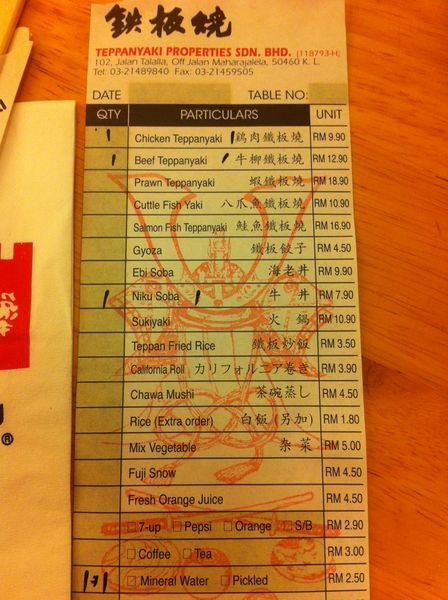 鉄板燒
TEPPANYAKI PROPERTIES SDN. BHD. (118793-H)
102, Jalan Talalla, Off Jalan Maharajalela, 50460 K. L.
Tel: 03-21489840 Fax: 03-21459505
DATE TABLE NO:
QTY PARTICULARS UNIT
1 Chicken Teppanyaki 1 鶏肉鐵板燒 RM 9.90
1 Beef Teppanyaki 1 牛柳鐵板燒 RM 12.90
Prawn Teppanyaki 蝦鐵板燒 RM 18.90
Cuttle Fish Yaki 八爪魚鐵板燒 RM 10.90
Salmon Fish Teppanyaki 鮭魚鐵板燒 RM 16.90
Gyoza 鐵板餃子 RM 4.50
Ebi Soba 海老丼 RM 9.90
1 Niku Soba 1 牛丼 RM 7.90
Sukiyaki 火鍋 RM 10.90
Teppan Fried Rice 鐵板炒飯 RM 3.50
California Roll カリフォルニア巻き RM 3.90
Chawa Mushi 茶碗蒸し RM 4.50
Rice (Extra order) 白飯 (另加) RM 1.80
Mix Vegetable 杂菜 RM 5.00
Fuji Snow RM 4.50
Fresh Orange Juice RM 4.50
7-up Pepsi Orange S/B RM 2.90
Coffee Tea RM 3.00
Mineral Water Pickled RM 2.50